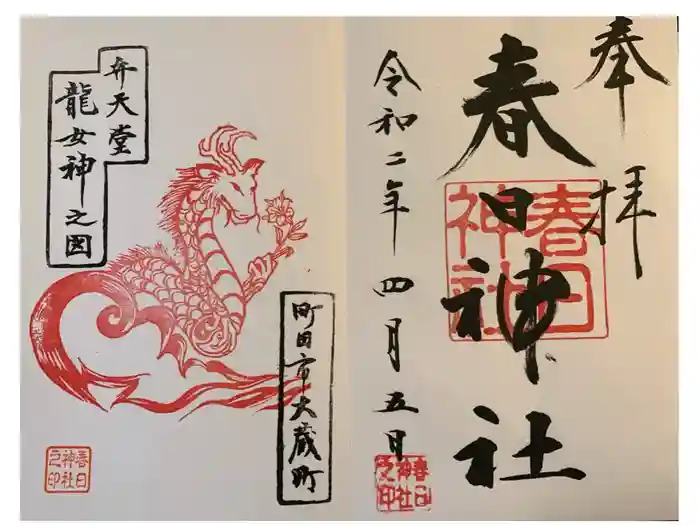 奉拝
春日神社
春日神社
令和二年四月五日
春日神社之印
町田市大蔵町
弁天堂
龍女神之図
春日神社之印